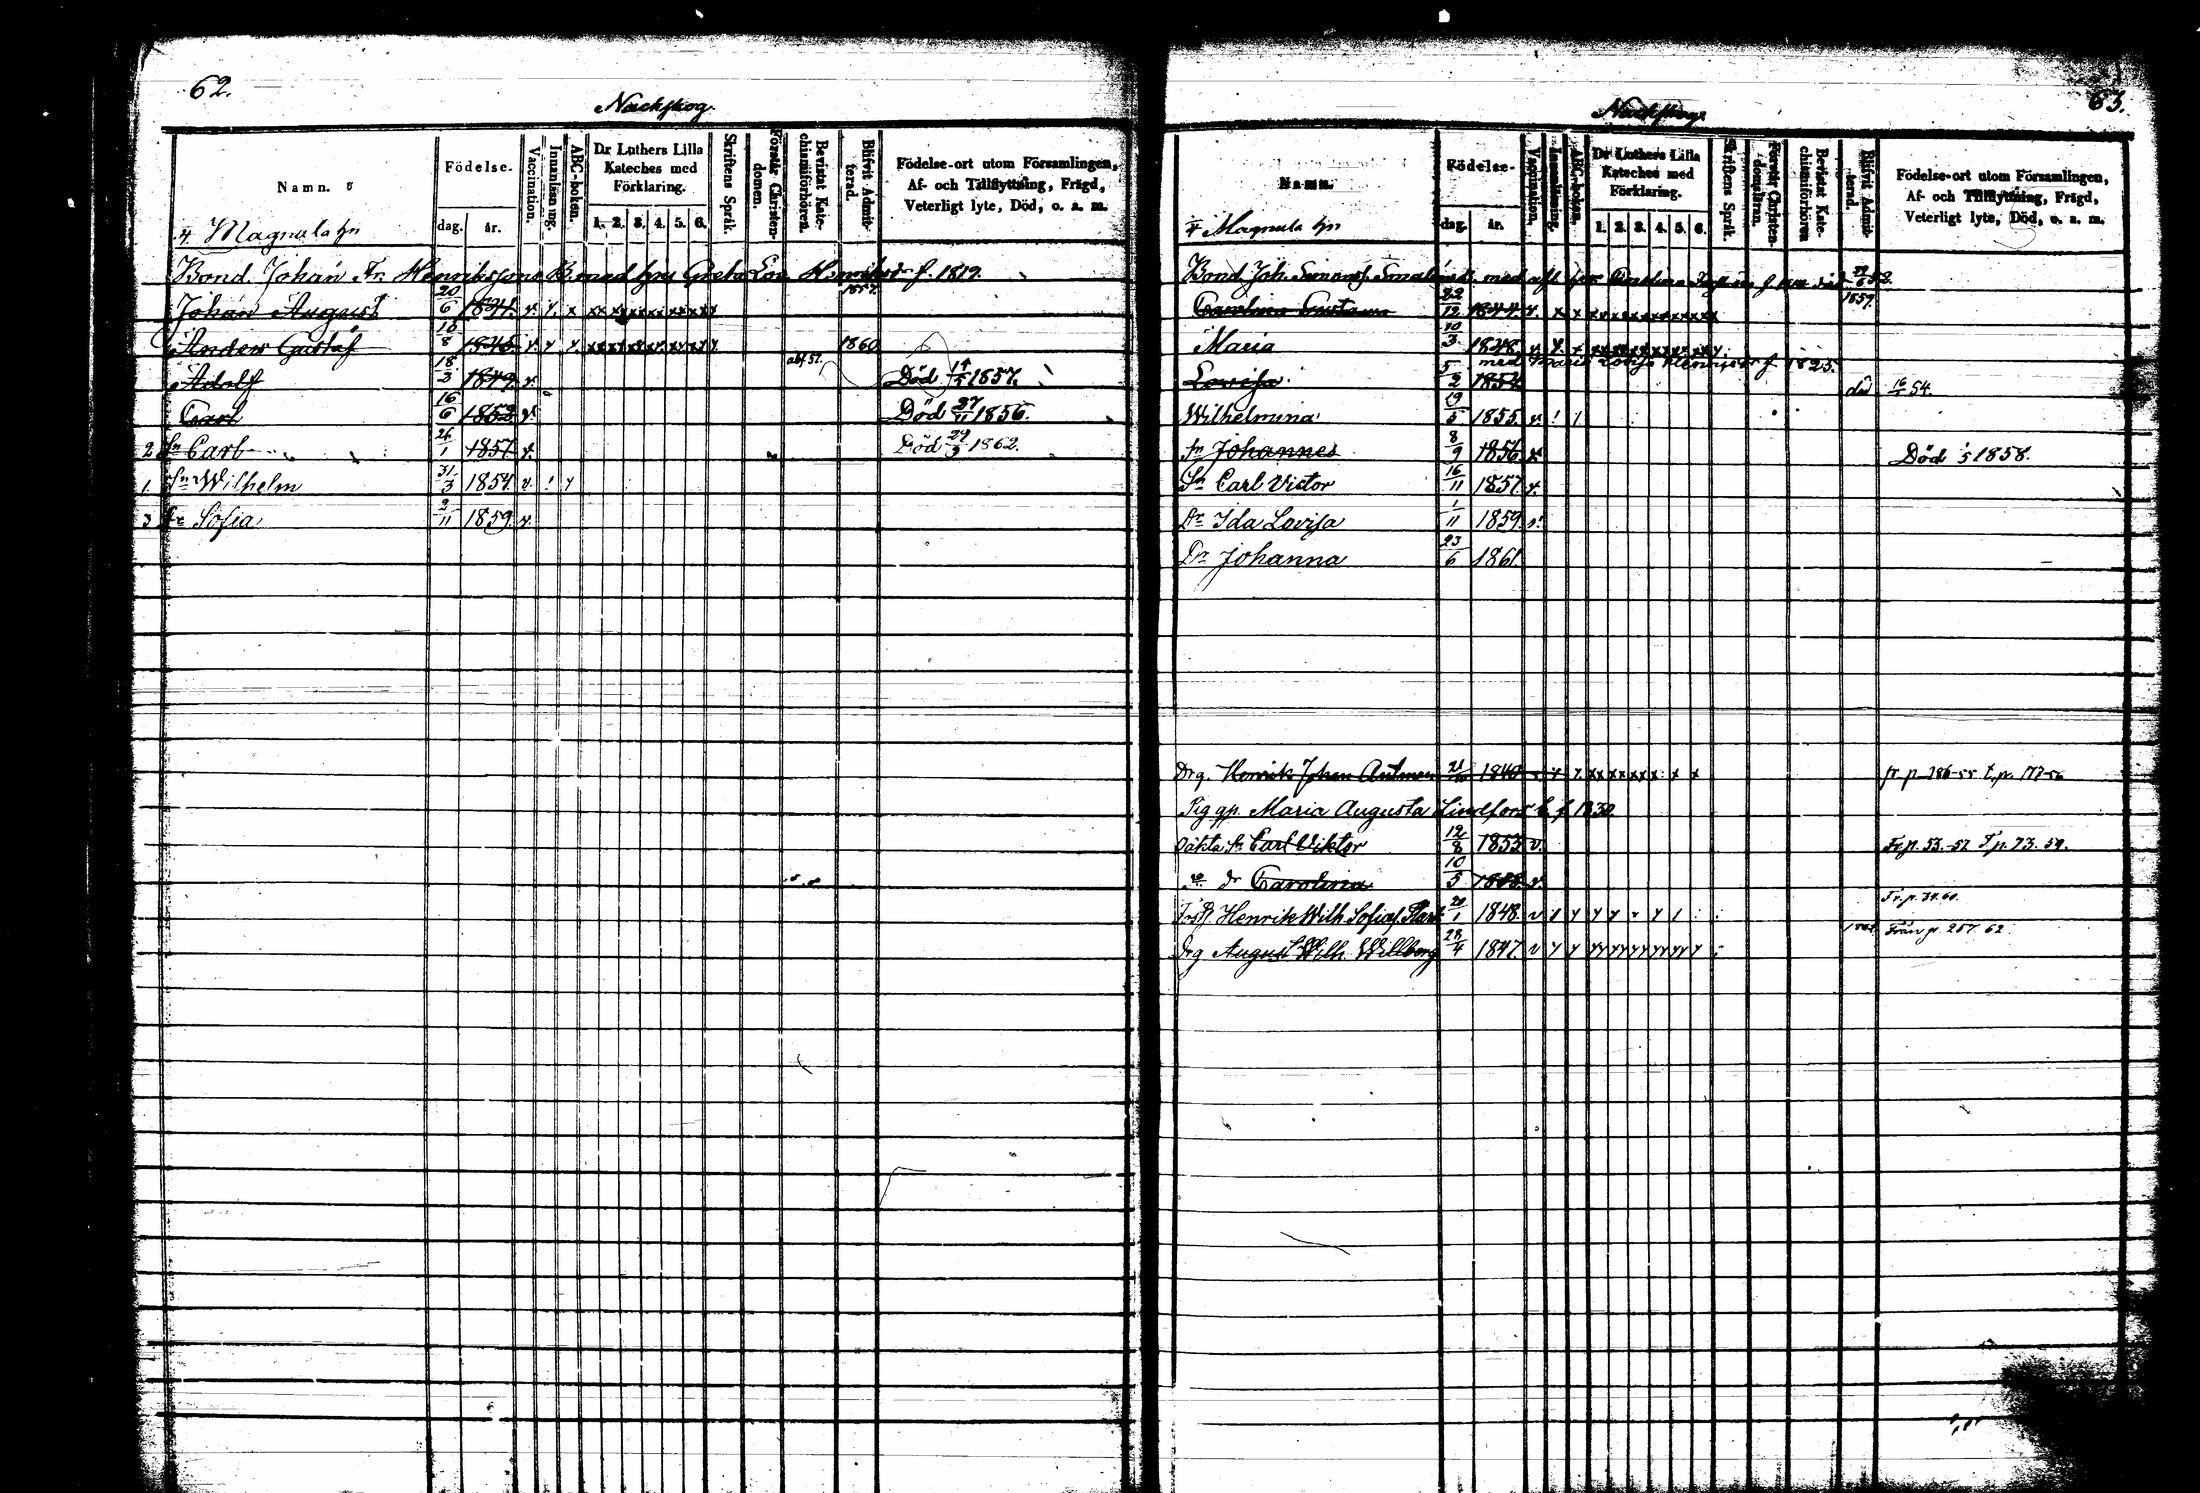 62.
Nackskog.
Namn.
Födelse-
dag.
år.
Vaccination.
Innanläsning.
ABC-boken.
Dr Luthers Lilla Kateches med Förklaring.
1. 2. 3. 4. 5. 6.
Skriftens Språk.
Förstår Christendomen.
Bevistat Katechismiförhören.
Blifvit Admitterad.
Födelse-ort utom Församlingen, Af- och Tillflyttning, Frägd, Veterligt lyte, Död, o. s. m.
4. Magnula hn
Bond. Johan Fr. Henriksson B. med hu Greta Lov. Henriksdr f. 1819.
Johan August 20/6 1841. v. x x xx xx xx xx xx xx 1857.
Anders Gustaf 10/8 1845. v. x x xx xx xx xx xx xx 1860
Adolf 18/3 1849 v. abs. 57. Död 14/5 1857.
Carl 16/6 1852 v. Död 27/11 1856.
2 Sn Carl 26/1 1857 v. Död 29/9 1862.
1. Sn Wilhelm 31/3 1854. v. ! x
3 Dr Sofia 9/11 1859 v.
63.
Nackskog.
Namn.
Födelse-
dag.
år.
Vaccination.
Innanläsning.
ABC-boken.
Dr Luthers Lilla Kateches med Förklaring.
1. 2. 3. 4. 5. 6.
Skriftens Språk.
Förstår Christendomsläran.
Bevistat Katechismiförhören
Blifvit Admitterad.
Födelse-ort utom Församlingen, Af- och Tillflyttning, Frägd, Veterligt lyte, Död, o. s. m.
Magnula hn
Bond. Joh. med hu Carolina f. död 52.
Carolina Gustava 22/12 1844. v. x x xx xx xx xx xx xx 1859.
Maria 10/3 1848 v. x x xx xx xx xx xx xx
med Maria Lovisa Henriksdr f. 1825.
Lovisa 5/2 1854 död 16/1 54.
Wilhelmina 19/5 1855. v. ! /
Sn Johannes 8/9 1856 x Död 1858.
Sn Carl Victor 16/11 1857. v.
Dr Ida Lovisa 1/11 1859 v.
Dr Johanna 23/6 1861.
Drg. Henrik Johan 21/10 1840 x x xx xx xx x x fr. p. 186-55 t. p. 177-56
Pig qp. Maria Augusta Lindfors f. 1830.
Oäkta Sn Carl Viktor 12/8 1853 v. Fr. p. 53.-57 T. p. 73. 59.
dr Carolina 10/5 v.
Henrik Wilh. 20/1 1848. v Fr. p. 34. 60.
Drg August Wilh. Willberg 28/4 1847. v x x xx xx xx xx xx x Från p. 257. 62